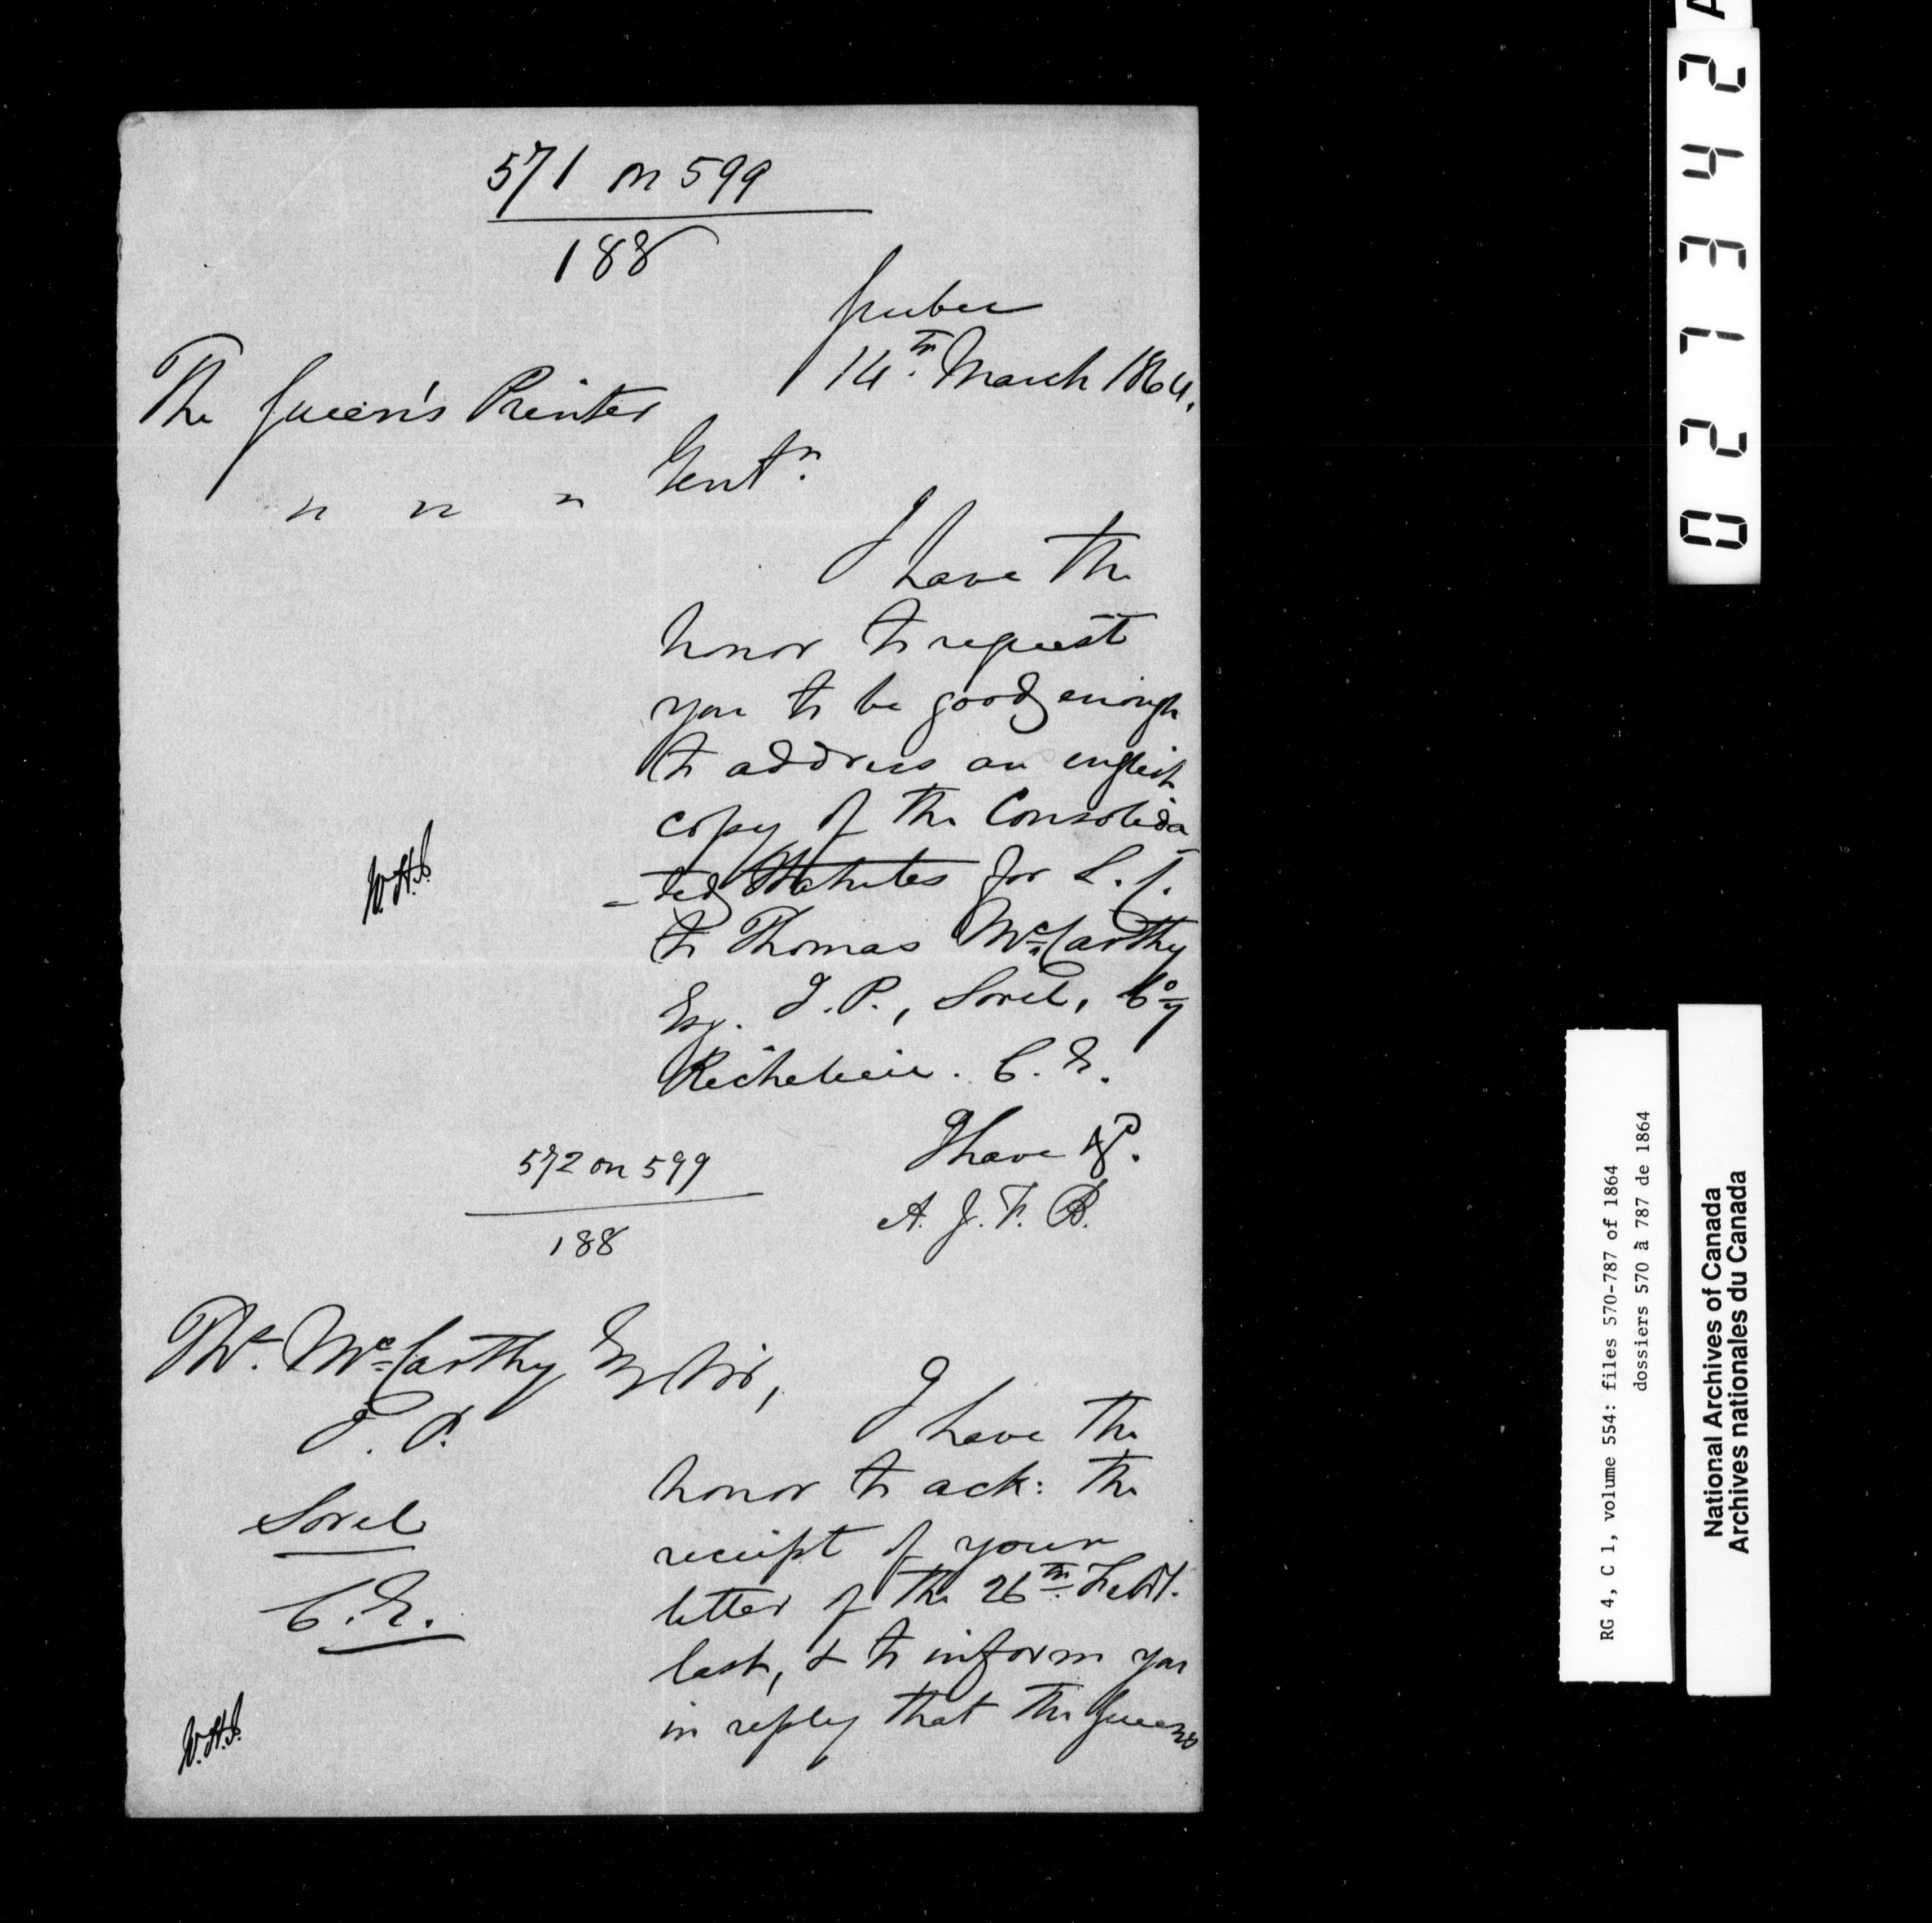 571 on 599
188
Quebec
14th March 1864.
The Queen's Printer
" " "
Gentn.
I have the
honor to request
you to be good enough
to address an english
copy of the Consolida
-ted Statutes for L. C.
to Thomas McCarthy
Esq. J. P., Sorel, Coy
Richelieu. C. E.
I have &c.
A. J. F. B.
W.H.J.
572 on 599
188
Ths. McCarthy Esq
J. P.
Sorel
C. E.
Sir,
I have the
honor to ack: the
receipt of your
letter of the 26th Feby.
last, & to inform you
in reply that the Queens
W.H.J.
027342
RG 4, C 1, volume 554: files 570-787 of 1864
dossiers 570 à 787 de 1864
National Archives of Canada
Archives nationales du Canada